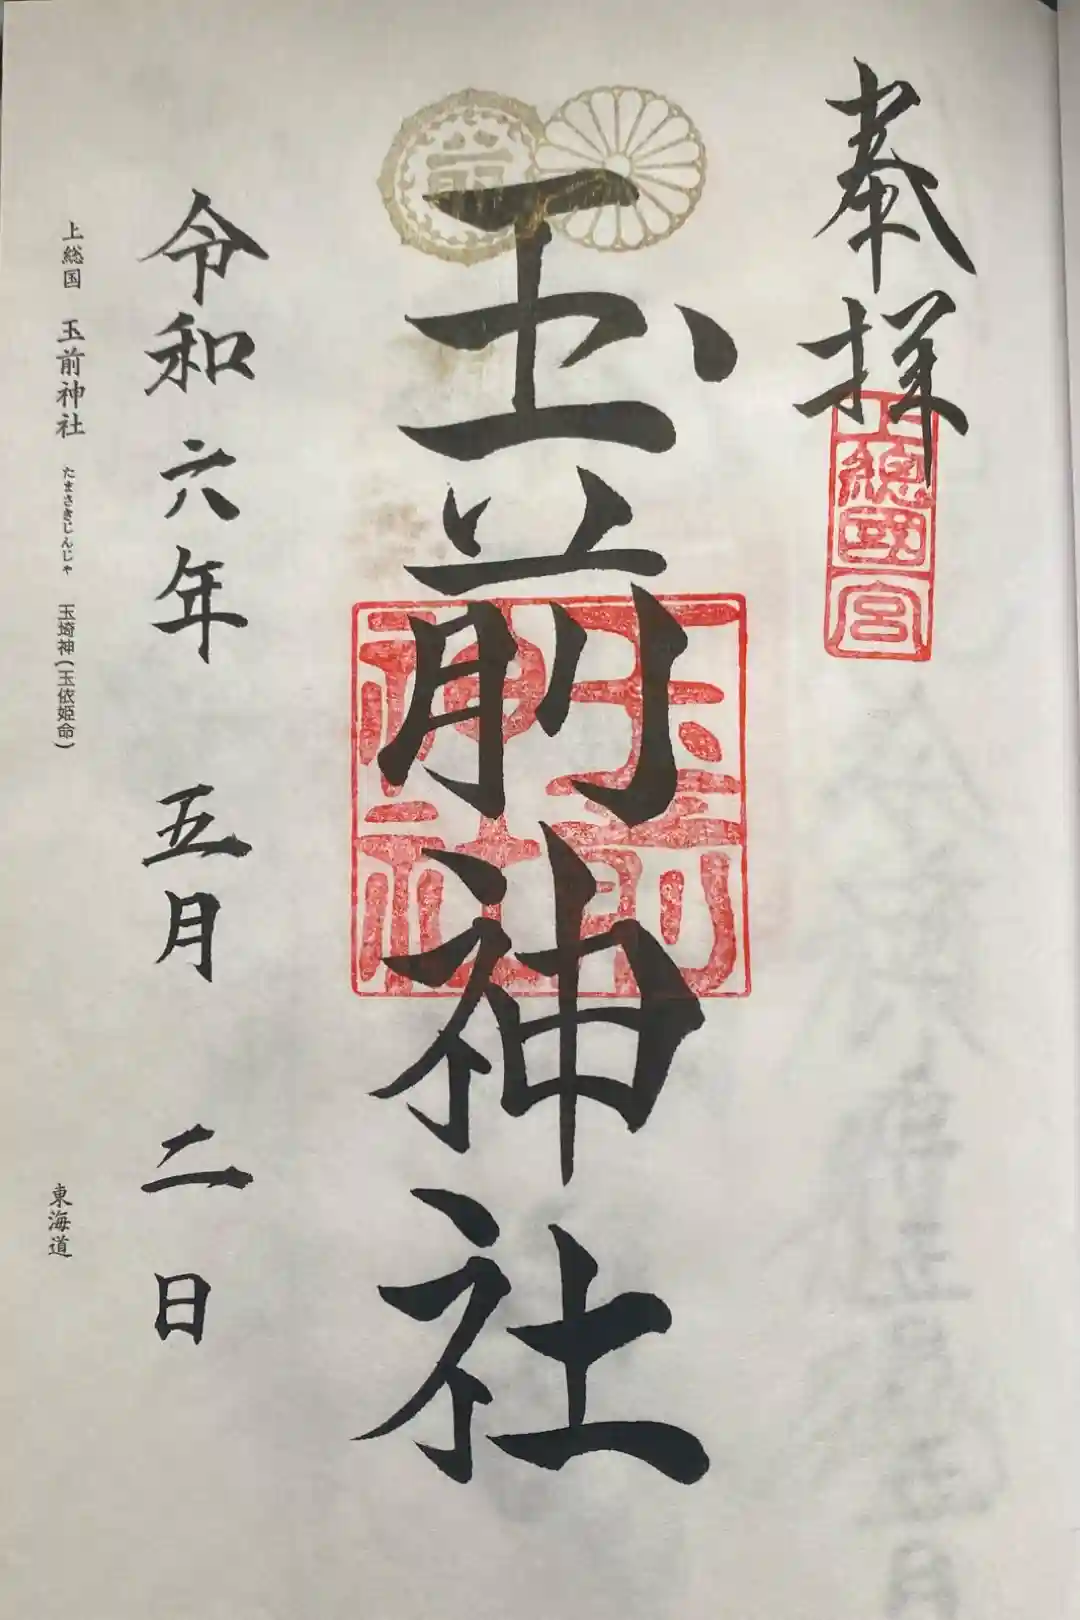 奉拝
上總國一宮
玉前神社
玉前神社
令和六年 五月 二日
上総国 玉前神社 たまさきじんじゃ 玉埼神(玉依姫命)
東海道